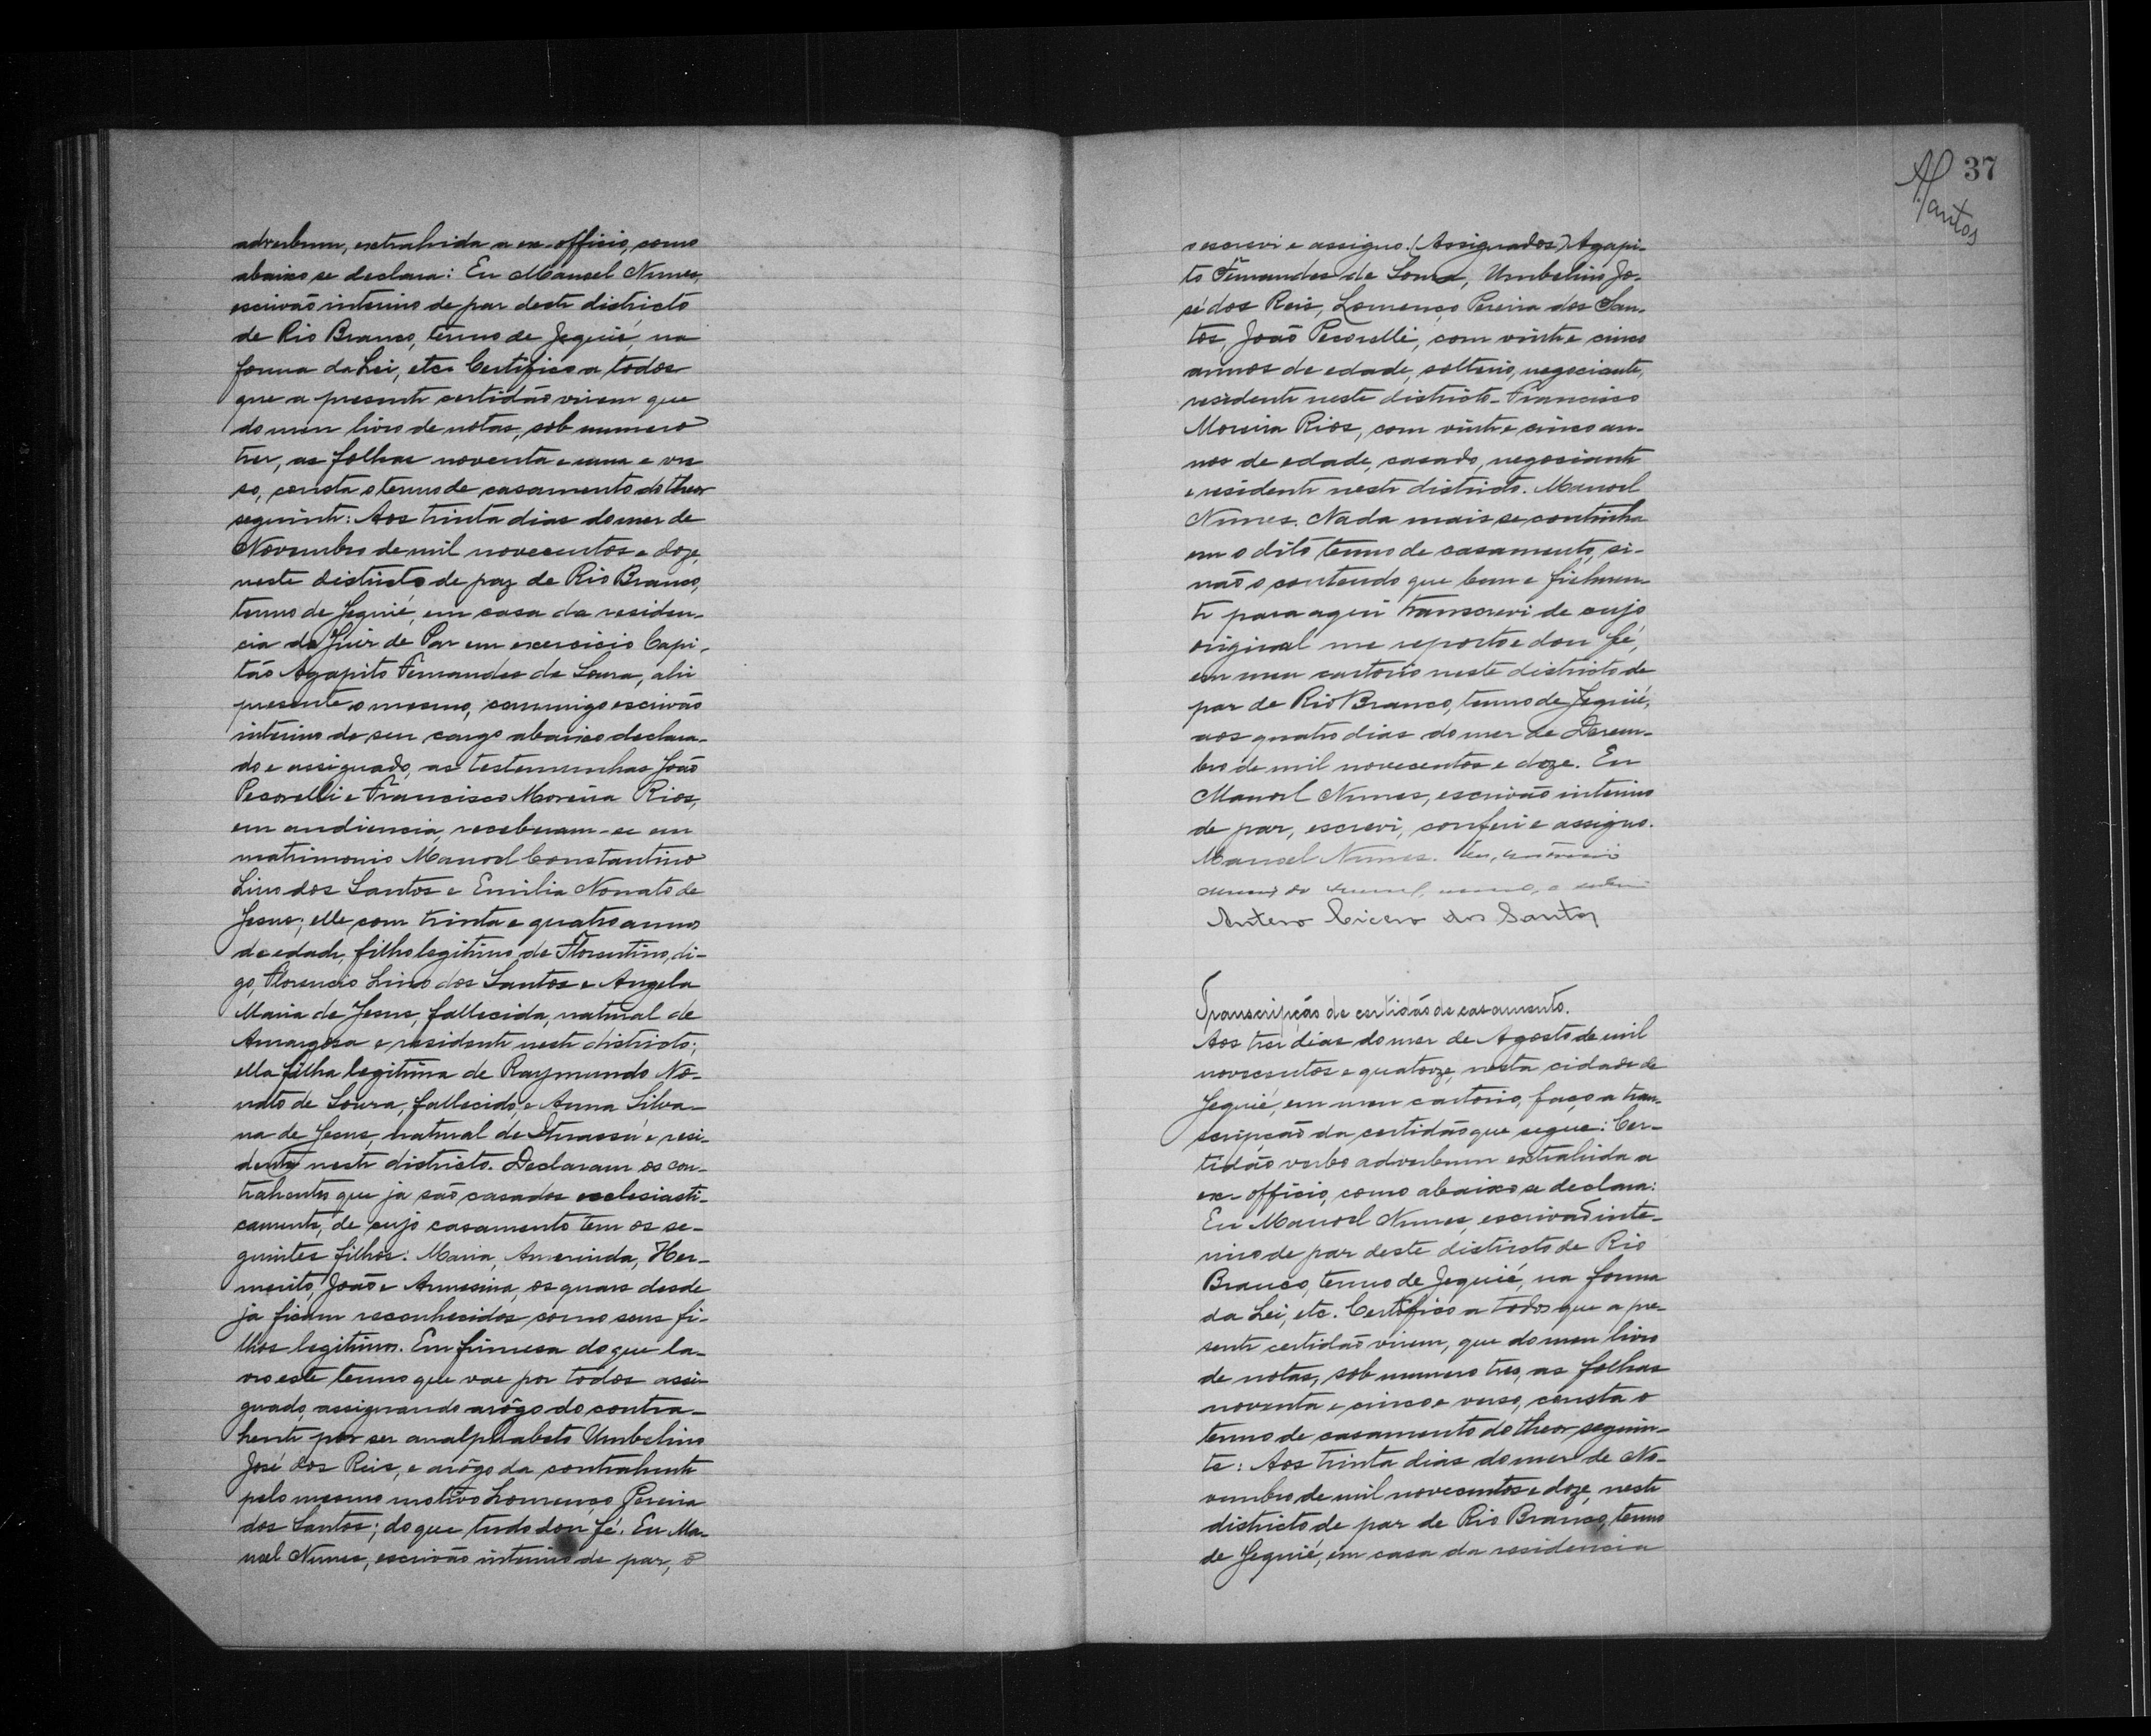 adverbum, extrahida a ex-officio, como
abaixo se declara: Eu Manoel Nunes,
escrivão interino de paz deste districto
de Rio Branco, termo de Jequié, na
forma da Lei, etc. Certifico a todos
que a presente certidão virem que
do meu livro de notas, sob numero
tres, as folhas noventa e uma e ver
so, consta o termo de casamento do theor
seguinte: Aos trinta dias do mez de
Novembro de mil novecentos e doze,
neste districto de paz de Rio Branco,
termo de Jequié, em casa da residen-
cia do Juiz de Paz em exercicio Capi-
tão Agapito Fernandes de Souza, ahi
presente o mesmo, commigo escrivão
interino do seu cargo abaixo declara-
do e assignado, as testemunhas João
Pecorelli e Francisco Moreira Rios,
em audiencia, receberam-se em
matrimonio Manoel Constantino
Lino dos Santos e Emilia Nonato de
Jesus; elle com trinta e quatro annos
de edade, filho legitimo de Florentino, di-
go, Florencio Lino dos Santos e Angela
Maria de Jesus, fallecida, natural de
Amargosa e residente neste districto;
ella filha legitima de Raymundo No-
nato de Souza, fallecido, e Anna Silva-
na de Jesus, natural de e resi-
dente neste districto. Declaram os con-
trahentes que ja são casados ecclesiasti-
camente, de cujo casamento tem os se-
guintes filhos: Maria, Amerinda, Her-
merito, João e Arminina, os quaes desde
ja ficam reconhecidos como seus fi-
lhos legitimos. Em firmesa do que la-
vro este termo que vae por todos assi-
gnado, assignando arôgo do contra-
hente por ser analphabeto Umbelino
José dos Reis, e arôgo da contrahente
pelo mesmo motivo Lourenço Pereira
dos Santos; do que tudo dou fé. Eu Ma-
noel Nunes, escrivão interino de paz, o
37
ASantos
o escrevi e assigno. (Assignados) Agapi-
to Fernandes de Souza, Umbelino Jo-
sé dos Reis, Lourenço Pereira dos San-
tos, João Pecorelli, com vinte e cinco
annos de edade, solteiro, negociante,
residente neste districto. Francisco
Moreira Rios, com vinte e cinco an-
nos de edade, casado, negociante
e residente neste districto. Manoel
Nunes. Nada mais se continha
em o dito termo de casamento, si-
não o conteudo que bem e fielmen
te para aqui transcrevi de cujo
original me reporto e dou fé,
em meu cartorio neste districto de
paz de Rio Branco, termo de Jequié,
aos quatro dias do mez de Dezem-
bro de mil novecentos e doze. Eu
Manoel Nunes, escrivão interino
de paz, escrevi, conferi e assigno.
Manoel Nunes. Eu,
Antero Cicero dos Santos
Transcripção de certidão de casamento.
Aos tres dias do mez de Agosto de mil
novecentos e quatorze, nesta cidade de
Jequié, em meu cartorio, faço a tran-
scripção da certidão que segue: Cer-
tidão verbo adverbum extrahida a
ex-officio, como abaixo se declara:
Eu Manoel Nunes, escrivão inte-
rino de paz deste districto de Rio
Branco, termo de Jequié, na forma
da Lei, etc. Certifico a todos que a pre-
sente certidão virem, que do meu livro
de notas, sob numero tres, as folhas
noventa e cinco e verso, consta o
termo de casamento do theor seguin-
te: Aos trinta dias do mez de No-
vembro de mil novecentos e doze, neste
districto de paz de Rio Branco, termo
de Jequié, em casa da residencia